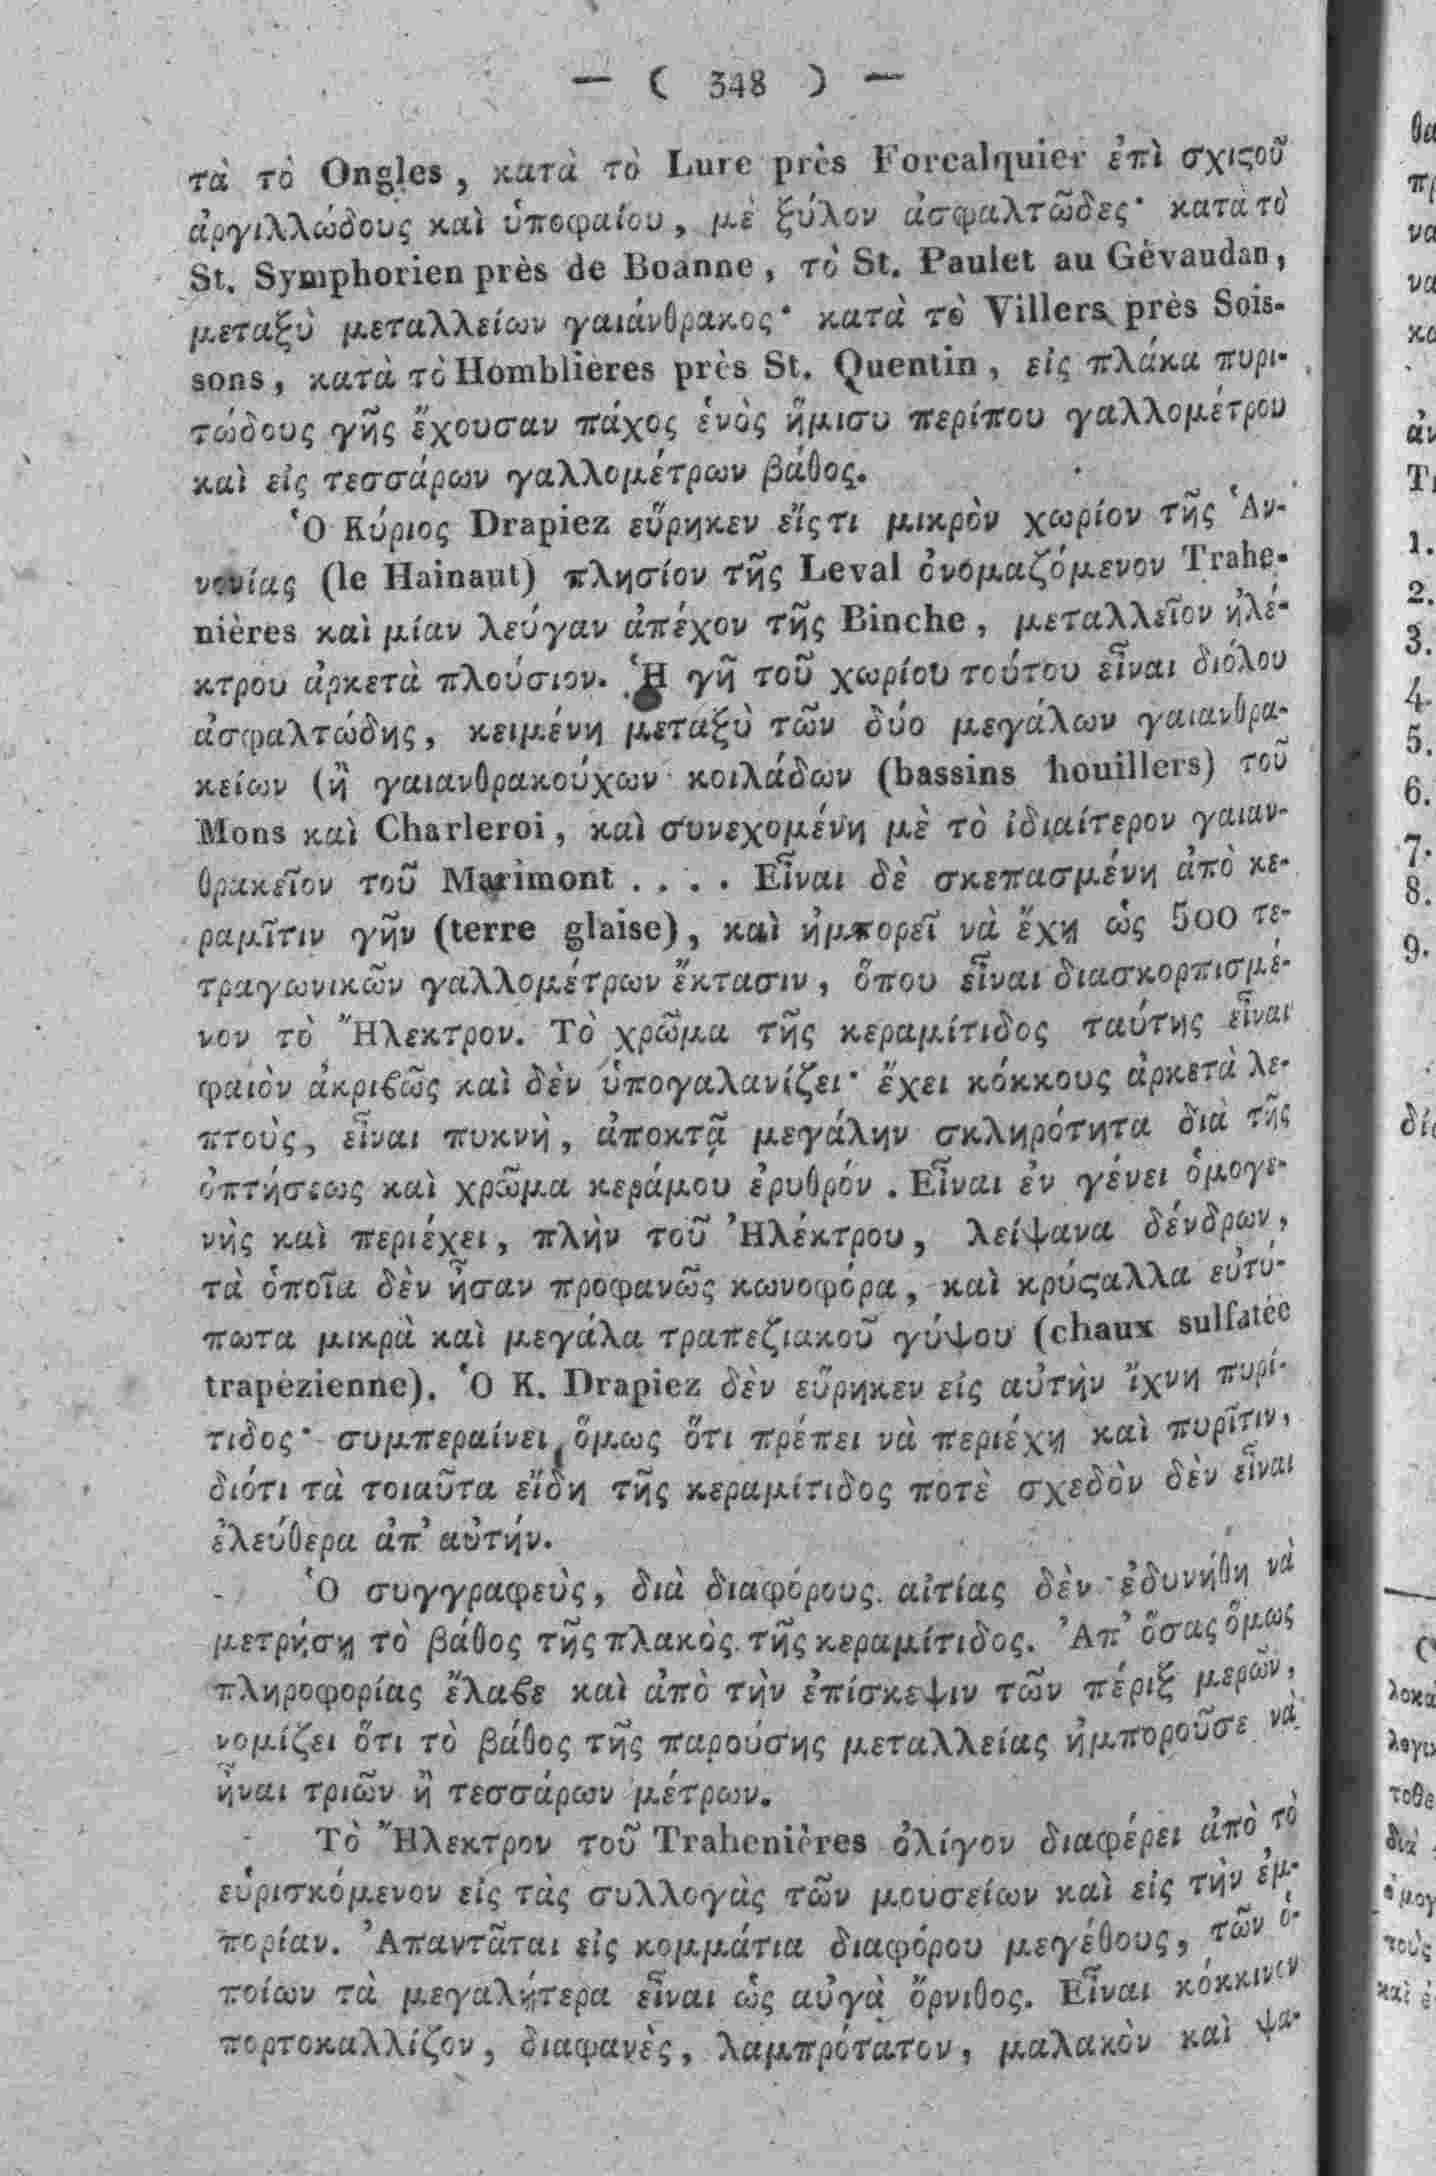 — ( 348 ) —
τὰ τὸ Ongles, κατὰ τὸ Lure près Forcalquier ἐπὶ σχιςοῦ
ἀργιλλώδους καὶ ὑποφαίου, μὲ ξύλον ἀσφαλτῶδες· κατὰ τὸ
St. Symphorien près de Boanne, τὸ St. Paulet au Gévaudan,
μεταξὺ μεταλλείων γαιάνθρακος· κατὰ τὸ Villers près Sois-
sons, κατὰ τὸ Homblières près St. Quentin, εἰς πλάκα πυρι-
τώδους γῆς ἔχουσαν πάχος ἑνὸς ἥμισυ περίπου γαλλομέτρου
καὶ εἰς τεσσάρων γαλλομέτρων βάθος.
Ὁ Κύριος Drapiez εὕρηκεν εἴς τι μικρὸν χωρίον τῆς Ἁν-
νονίας (le Hainaut) πλησίον τῆς Leval ὀνομαζόμενον Trahe-
nières καὶ μίαν λεύγαν ἀπέχον τῆς Binche, μεταλλεῖον ἠλέ-
κτρου ἀρκετὰ πλούσιον. Ἡ γῆ τοῦ χωρίου τούτου εἶναι διόλου
ἀσφαλτώδης, κειμένη μεταξὺ τῶν δύο μεγάλων γαιανθρα-
κείων (ἢ γαιανθρακούχων κοιλάδων (bassins houillers) τοῦ
Mons καὶ Charleroi, καὶ συνεχομένη μὲ τὸ ἰδιαίτερον γαιαν-
θρακεῖον τοῦ Marimont . . . . Εἶναι δὲ σκεπασμένη ἀπὸ κε-
ραμῖτιν γῆν (terre glaise), καὶ ἠμπορεῖ νὰ ἔχη ὡς 500 τε-
τραγωνικῶν γαλλομέτρων ἔκτασιν, ὅπου εἶναι διασκορπισμέ-
νον τὸ Ἤλεκτρον. Τὸ χρῶμα τῆς κεραμίτιδος ταύτης εἶναι
φαιὸν ἀκριϐῶς καὶ δὲν ὑπογαλανίζει· ἔχει κόκκους ἀρκετὰ λε-
πτοὺς, εἶναι πυκνὴ, ἀποκτᾷ μεγάλην σκληρότητα διὰ τῆς
ὀπτήσεως καὶ χρῶμα κεράμου ἐρυθρόν. Εἶναι ἐν γένει ὁμογε-
νὴς καὶ περιέχει, πλὴν τοῦ Ἠλέκτρου, λείψανα δένδρων,
τὰ ὁποῖα δὲν ἦσαν προφανῶς κωνοφόρα, καὶ κρύςαλλα εὐτύ-
πωτα μικρὰ καὶ μεγάλα τραπεζιακοῦ γύψου (chaux sulfatée
trapézienne). Ὁ Κ. Drapiez δὲν εὕρηκεν εἰς αὐτὴν ἴχνη πυρί-
τιδος· συμπεραίνει ὅμως ὅτι πρέπει νὰ περιέχη καὶ πυρῖτιν,
διότι τὰ τοιαῦτα εἴδη τῆς κεραμίτιδος ποτὲ σχεδὸν δὲν εἶναι
ἐλεύθερα ἀπ' αὐτήν.
Ὁ συγγραφεὺς, διὰ διαφόρους αἰτίας δὲν ἐδυνήθη νὰ
μετρήσῃ τὸ βάθος τῆς πλακὸς τῆς κεραμίτιδος. Ἀπ' ὅσας ὅμως
πληροφορίας ἔλαϐε καὶ ἀπὸ τὴν ἐπίσκεψιν τῶν πέριξ μερῶν,
νομίζει ὅτι τὸ βάθος τῆς παρούσης μεταλλείας ἠμποροῦσε νὰ
ἦναι τριῶν ἢ τεσσάρων μέτρων.
Τὸ Ἤλεκτρον τοῦ Trahenières ὀλίγον διαφέρει ἀπὸ τὸ
εὑρισκόμενον εἰς τὰς συλλογὰς τῶν μουσείων καὶ εἰς τὴν ἐμ-
πορίαν. Ἀπαντᾶται εἰς κομμάτια διαφόρου μεγέθους, τῶν ὁ-
ποίων τὰ μεγαλήτερα εἶναι ὡς αὐγὰ ὄρνιθος. Εἶναι κόκκινον
πορτοκαλλίζον, διαφανὲς, λαμπρότατον, μαλακὸν καὶ ψα-